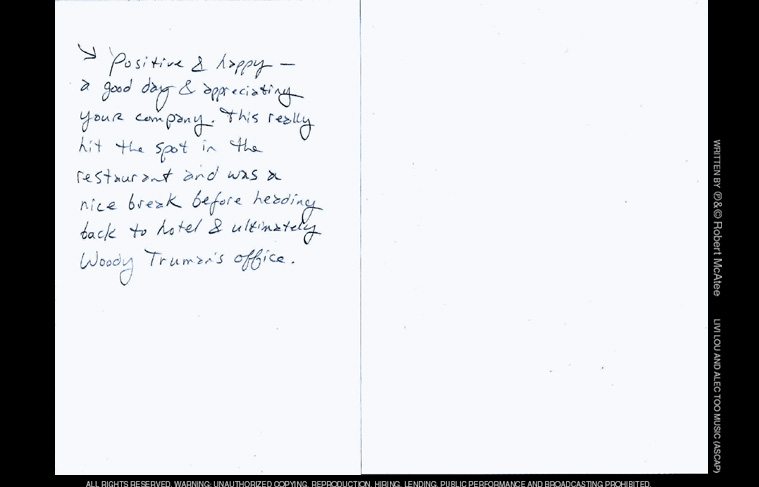 ↘ Positive & happy —
a good day & appreciating
your company. This really
hit the spot in the
restaurant and was a
nice break before heading
back to hotel & ultimately
Woody Truman's office.
WRITTEN BY ℗ & © Robert McAtee
LIVI LOU AND ALEC TOO MUSIC (ASCAP)
ALL RIGHTS RESERVED. WARNING: UNAUTHORIZED COPYING, REPRODUCTION, HIRING, LENDING, PUBLIC PERFORMANCE AND BROADCASTING PROHIBITED.